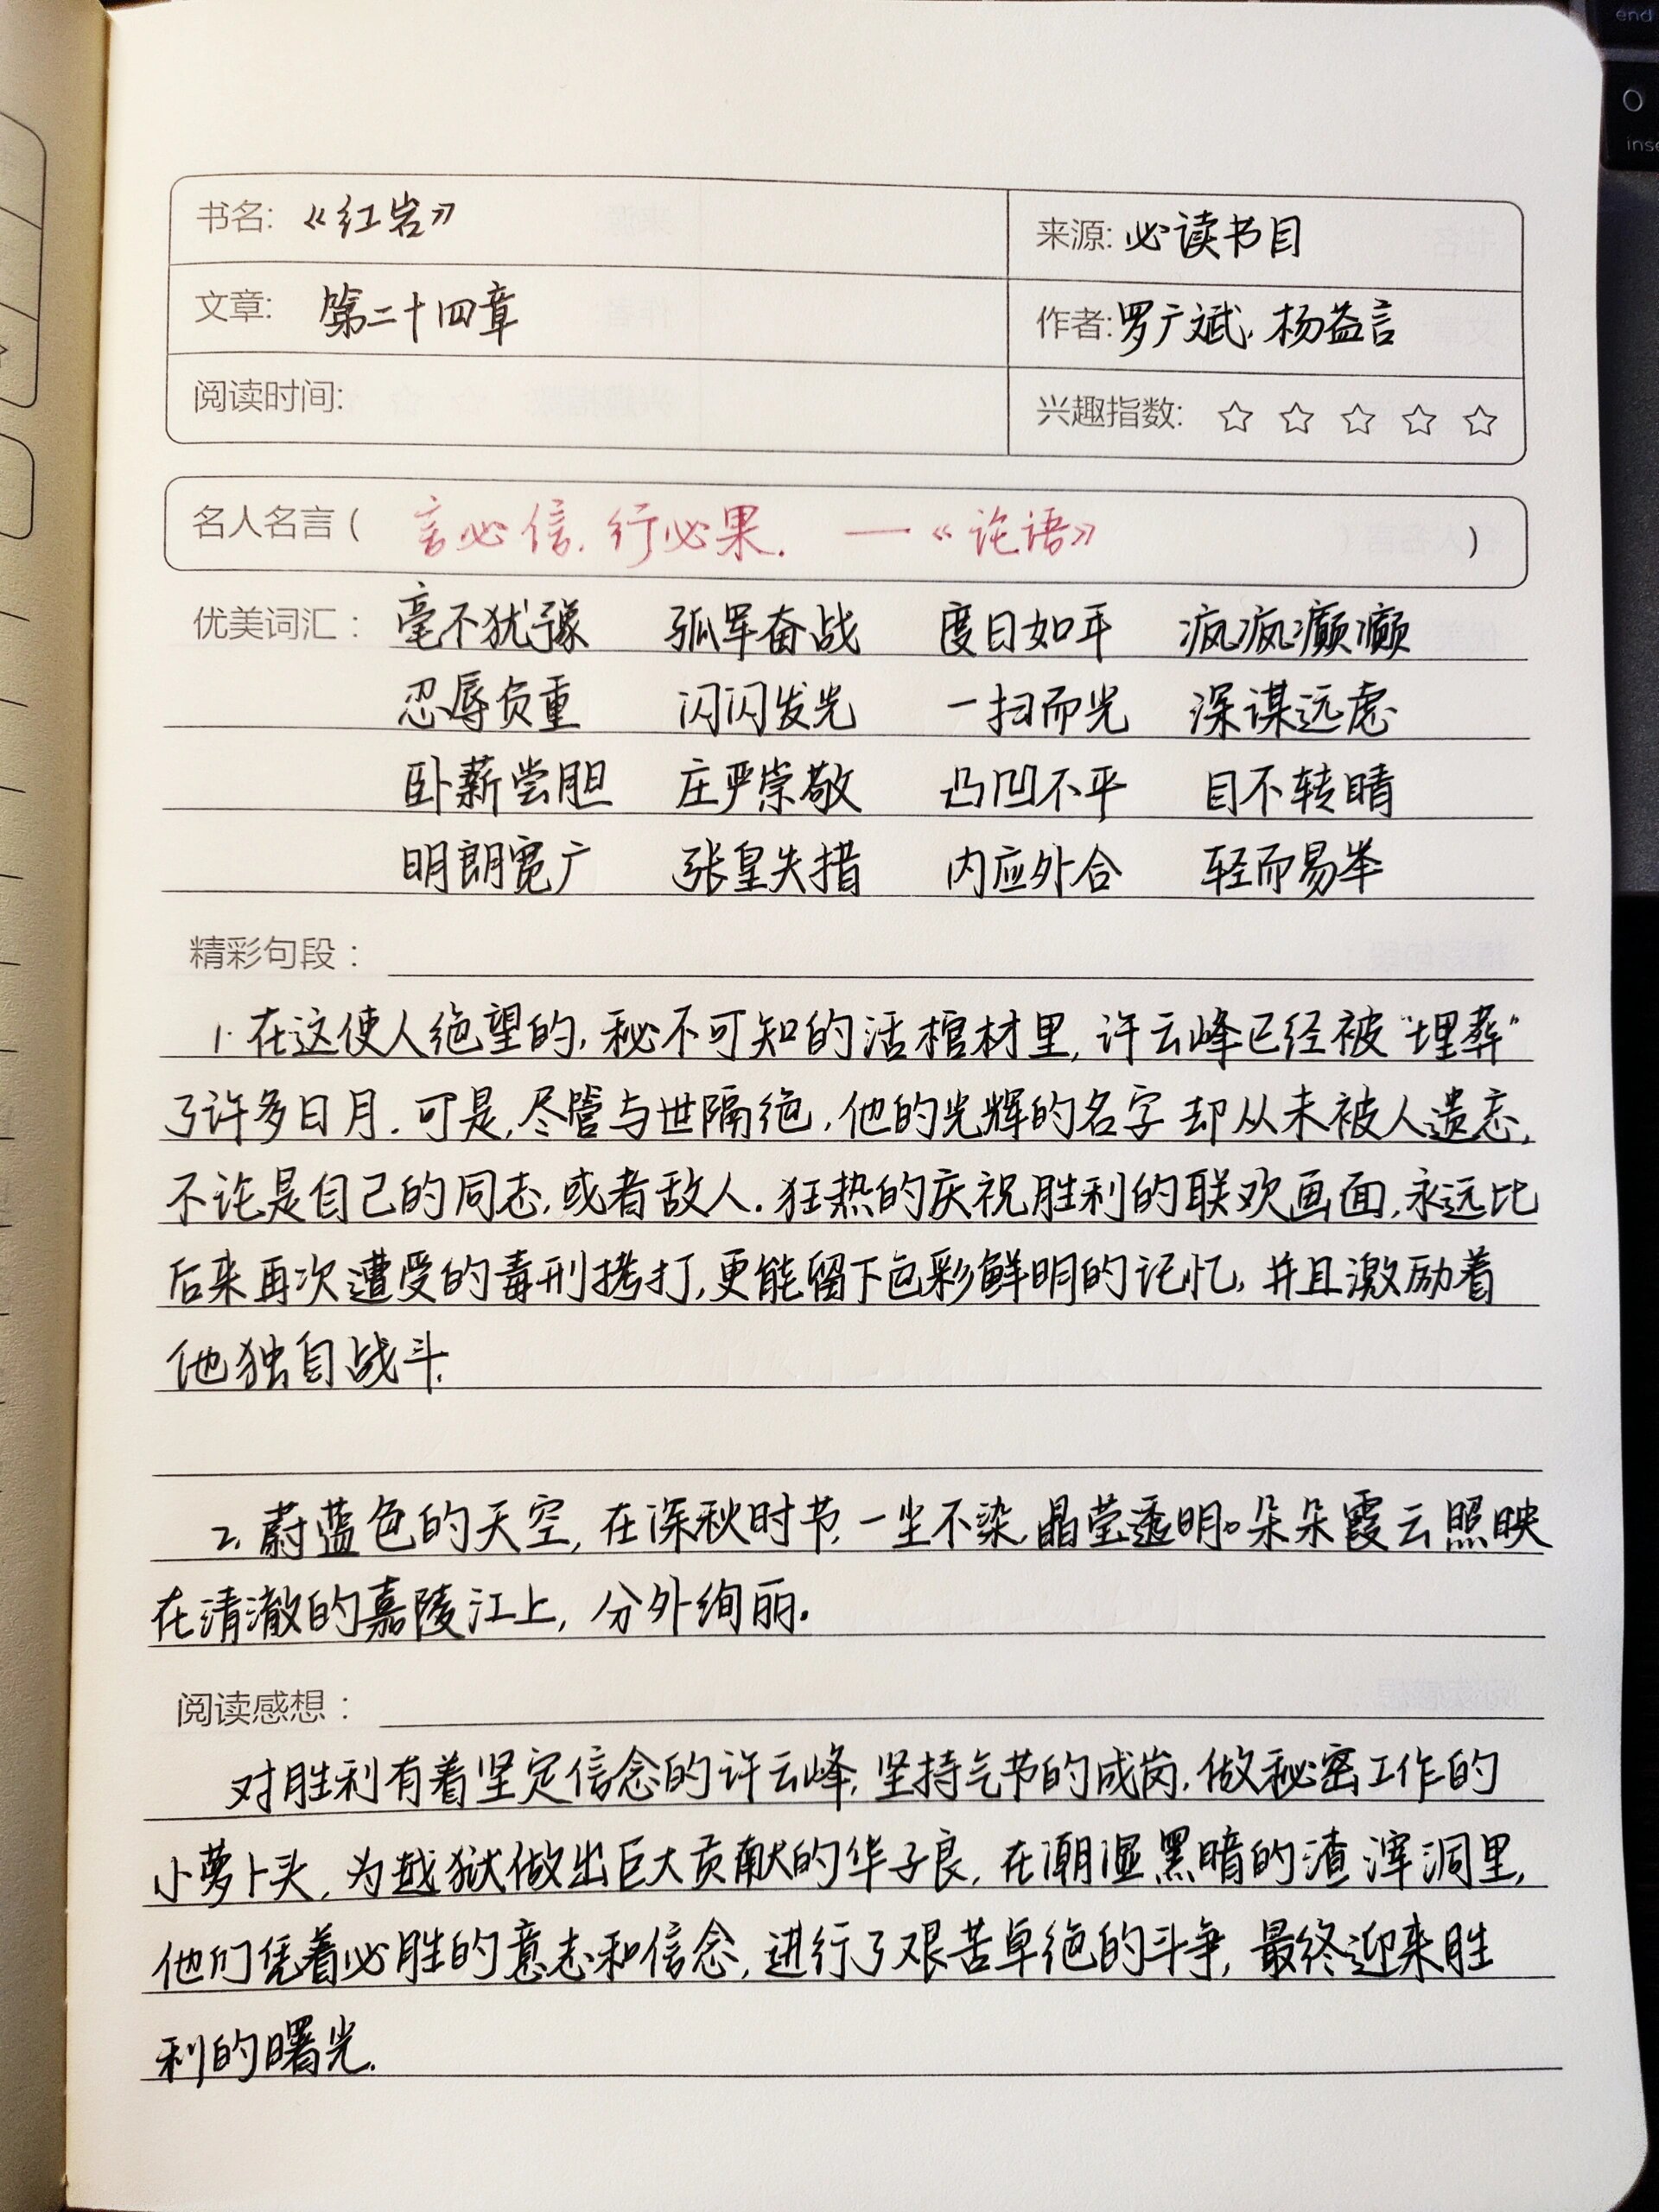 书名: 《红岩》
来源: 必读书目
文章: 第二十四章
作者: 罗广斌.杨益言
阅读时间:
兴趣指数: ☆ ☆ ☆ ☆ ☆
名人名言( 言必信.行必果. —《论语》 )
优美词汇: 毫不犹豫 孤军奋战 度日如年 疯疯癫癫
忍辱负重 闪闪发光 一扫而光 深谋远虑
卧薪尝胆 庄严崇敬 凸凹不平 目不转睛
明朗宽广 张皇失措 内应外合 轻而易举
精彩句段:
1.在这使人绝望的,秘不可知的活棺材里,许云峰已经被“埋葬”
了许多日月.可是,尽管与世隔绝,他的光辉的名字却从未被人遗忘,
不论是自己的同志,或者敌人.狂热的庆祝胜利的联欢画面,永远比
后来再次遭受的毒刑拷打,更能留下色彩鲜明的记忆,并且激励着
他独自战斗.
2.蔚蓝色的天空,在深秋时节,一尘不染,晶莹透明。朵朵霞云照映
在清澈的嘉陵江上,分外绚丽.
阅读感想:
对胜利有着坚定信念的许云峰,坚持气节的成岗,做秘密工作的
小萝卜头,为越狱做出巨大贡献的华子良,在潮湿黑暗的渣滓洞里,
他们凭着必胜的意志和信念,进行了艰苦卓绝的斗争,最终迎来胜
利的曙光.
end
inse